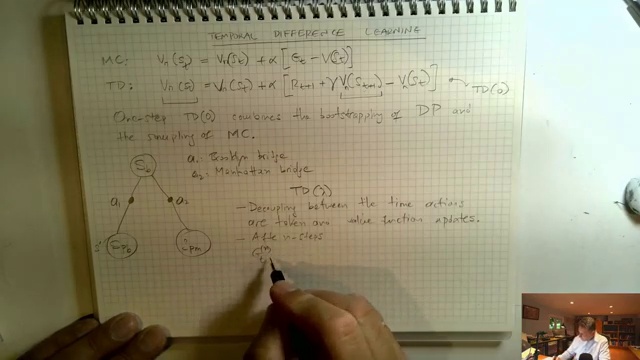 TEMPORAL DIFFERENCE LEARNING
MC: Vπ(St) = Vπ(St) + α [Gt - V(St)]
TD: Vπ(St) = Vπ(St) + α [Rt+1 + γVπ(St+1) - Vπ(St)]
TD(0)
One-step TD(0) combines the bootstrapping of DP and
the sampling of MC.
S
a1: Brooklyn bridge
a2: Manhattan bridge
a1
a2
TD(λ)
- Decoupling between the time actions
are taken and value function updates.
- After n-steps
G